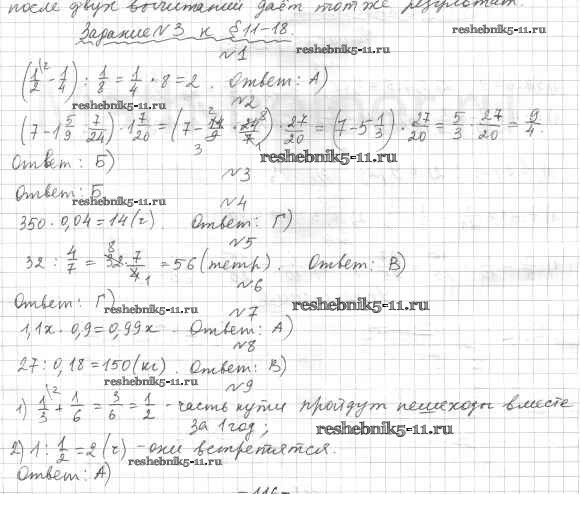 после двух вычитаний даёт тот же результат.
Задание №3 к §11-18.
№1
reshebnik5-11.ru
(1/2 - 1/4) : 1/8 = 1/4 · 8 = 2. Ответ: А)
reshebnik5-11.ru
№2
(7 - 1 5/9 : 7/24) · 1 7/20 = (7 - 14/9 · 24/7) · 27/20 = (7 - 5 1/3) · 27/20 = 5/3 · 27/20 = 9/4.
Ответ: Б)
reshebnik5-11.ru
№3
Ответ: Б
reshebnik5-11.ru
№4
350 · 0,04 = 14 (г). Ответ: Г)
№5
32 : 4/7 = 32 · 7/4 = 56 (метр). Ответ: В)
№6
Ответ: Г)
reshebnik5-11.ru
reshebnik5-11.ru
№7
1,1x · 0,9 = 0,99x. Ответ: А)
№8
27 : 0,18 = 150 (кг). Ответ: В)
reshebnik5-11.ru
№9
1) 1/3 + 1/6 = 3/6 = 1/2 - часть пути пройдут пешеходы вместе
за 1 год;
reshebnik5-11.ru
2) 1 : 1/2 = 2 (г) - они встретятся.
reshebnik5-11.ru
Ответ: А)